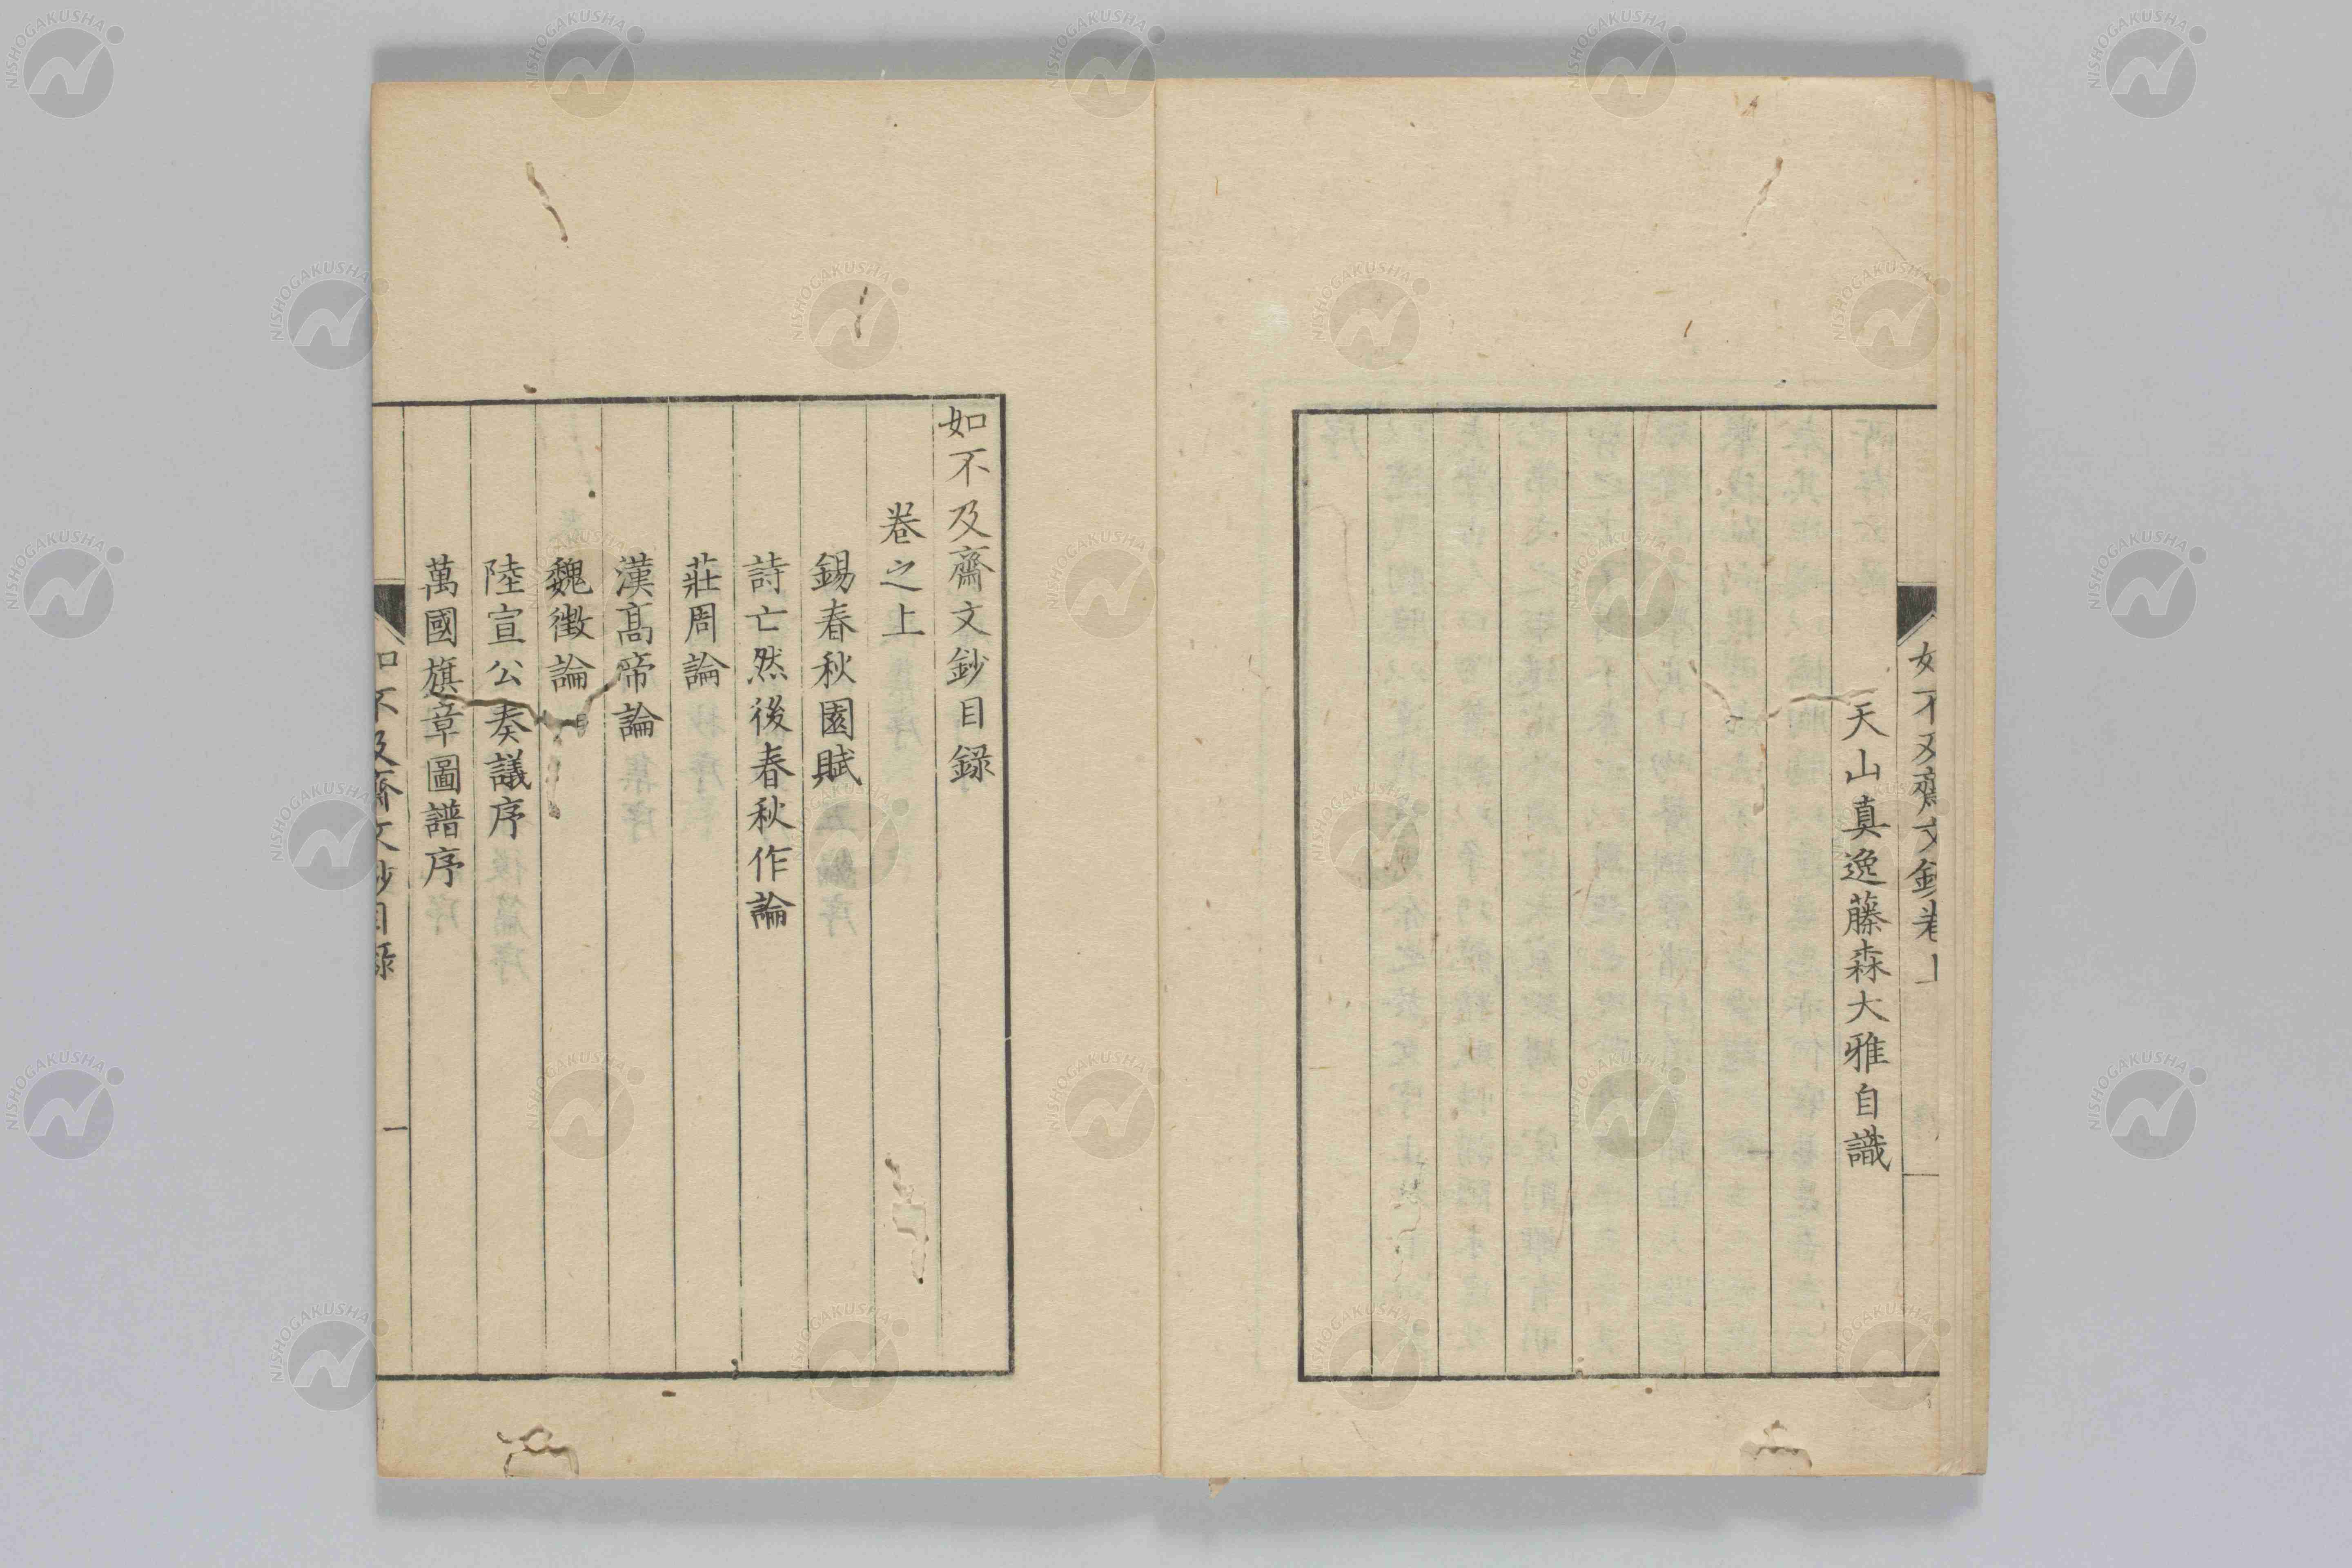 如不及齋文鈔卷上
天山真逸藤森大雅自識
如不及齋文鈔目録
卷之上
錫春秋園賦
詩亡然後春秋作論
莊周論
漢髙帝論
魏徴論
陸宣公奏議序
萬國旗章圖譜序
如不及齋文鈔目録
一
NISHOGAKUSHA